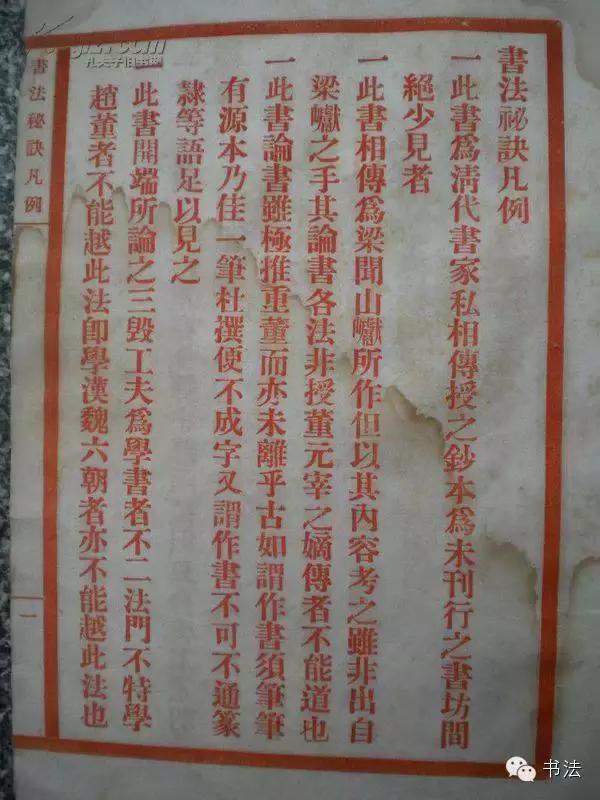 書法祕訣凡例
一此書爲清代書家私相傳授之鈔本爲未刊行之書坊間
絕少見者
一此書相傳爲梁聞山巘所作但以其內容考之雖非出自
梁巘之手其論書各法非授董元宰之嫡傳者不能道也
一此書論書雖極推重董而亦未離乎古如謂作書須筆筆
有源本乃佳一筆杜撰便不成字又謂作書不可不通篆
隸等語足以見之
一此書開端所論之三毀工夫爲學書者不二法門不特學
趙董者不能越此法卽學漢魏六朝者亦不能越此法也
書法祕訣凡例
一
孔夫子旧书网
书法